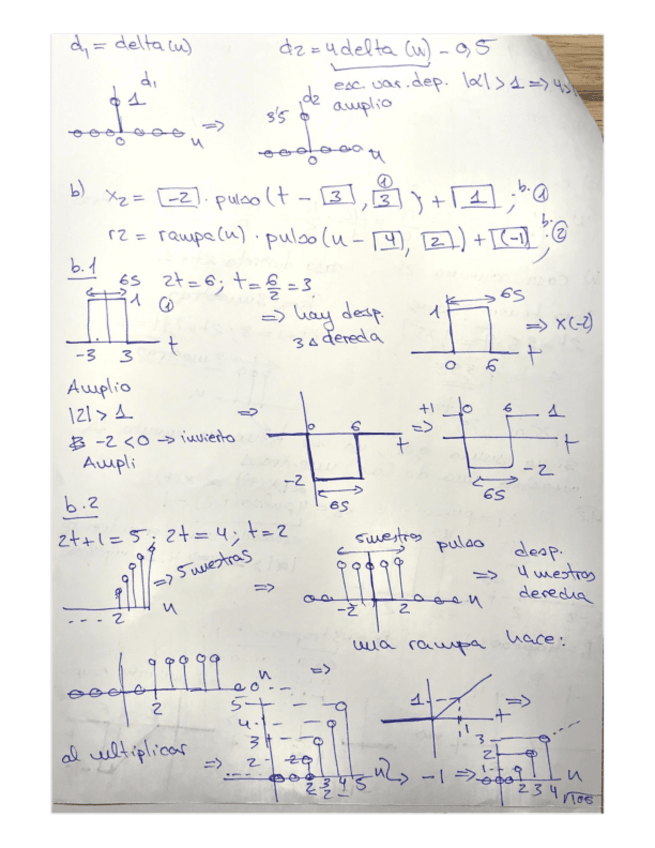 d1 = delta(n)    d2 = 4delta(n) - 0,5
d1    esc. var. dep. |α| > 1 =>
1    =>    d2    amplio
3'5
0    n    0    n
b) x2 = -2 · pulso(t - 3, 3) + 1 ; b. ①
①
r2 = rampa(n) · pulso(n - 4, 2) + (-1) ; b. ②
b.1
6s    2t = 6; t = 6/2 = 3    6s
1 ①    => hay desp.    1    => x(-2)
-3    3    t    3 a derecha    0    6    t
Amplio
|2| > 1    =>    0    6    =>    +1    0    6    1
-2 < 0 → invierto    t    t
Ampli    -2    -2
6s    6s
b.2
2t+1 = 5; 2t = 4; t = 2    5 muestras    pulso    desp.
=> 5 muestras    =>    => 4 muestras
--- 2    n    -2    2    n    derecha
una rampa hace:
2    n    =>
5    1    =>
4    1    t
3    3
al multiplicar    =>    2    n    → -1 =>    2    n
2 3 4 5    1    2 3 4